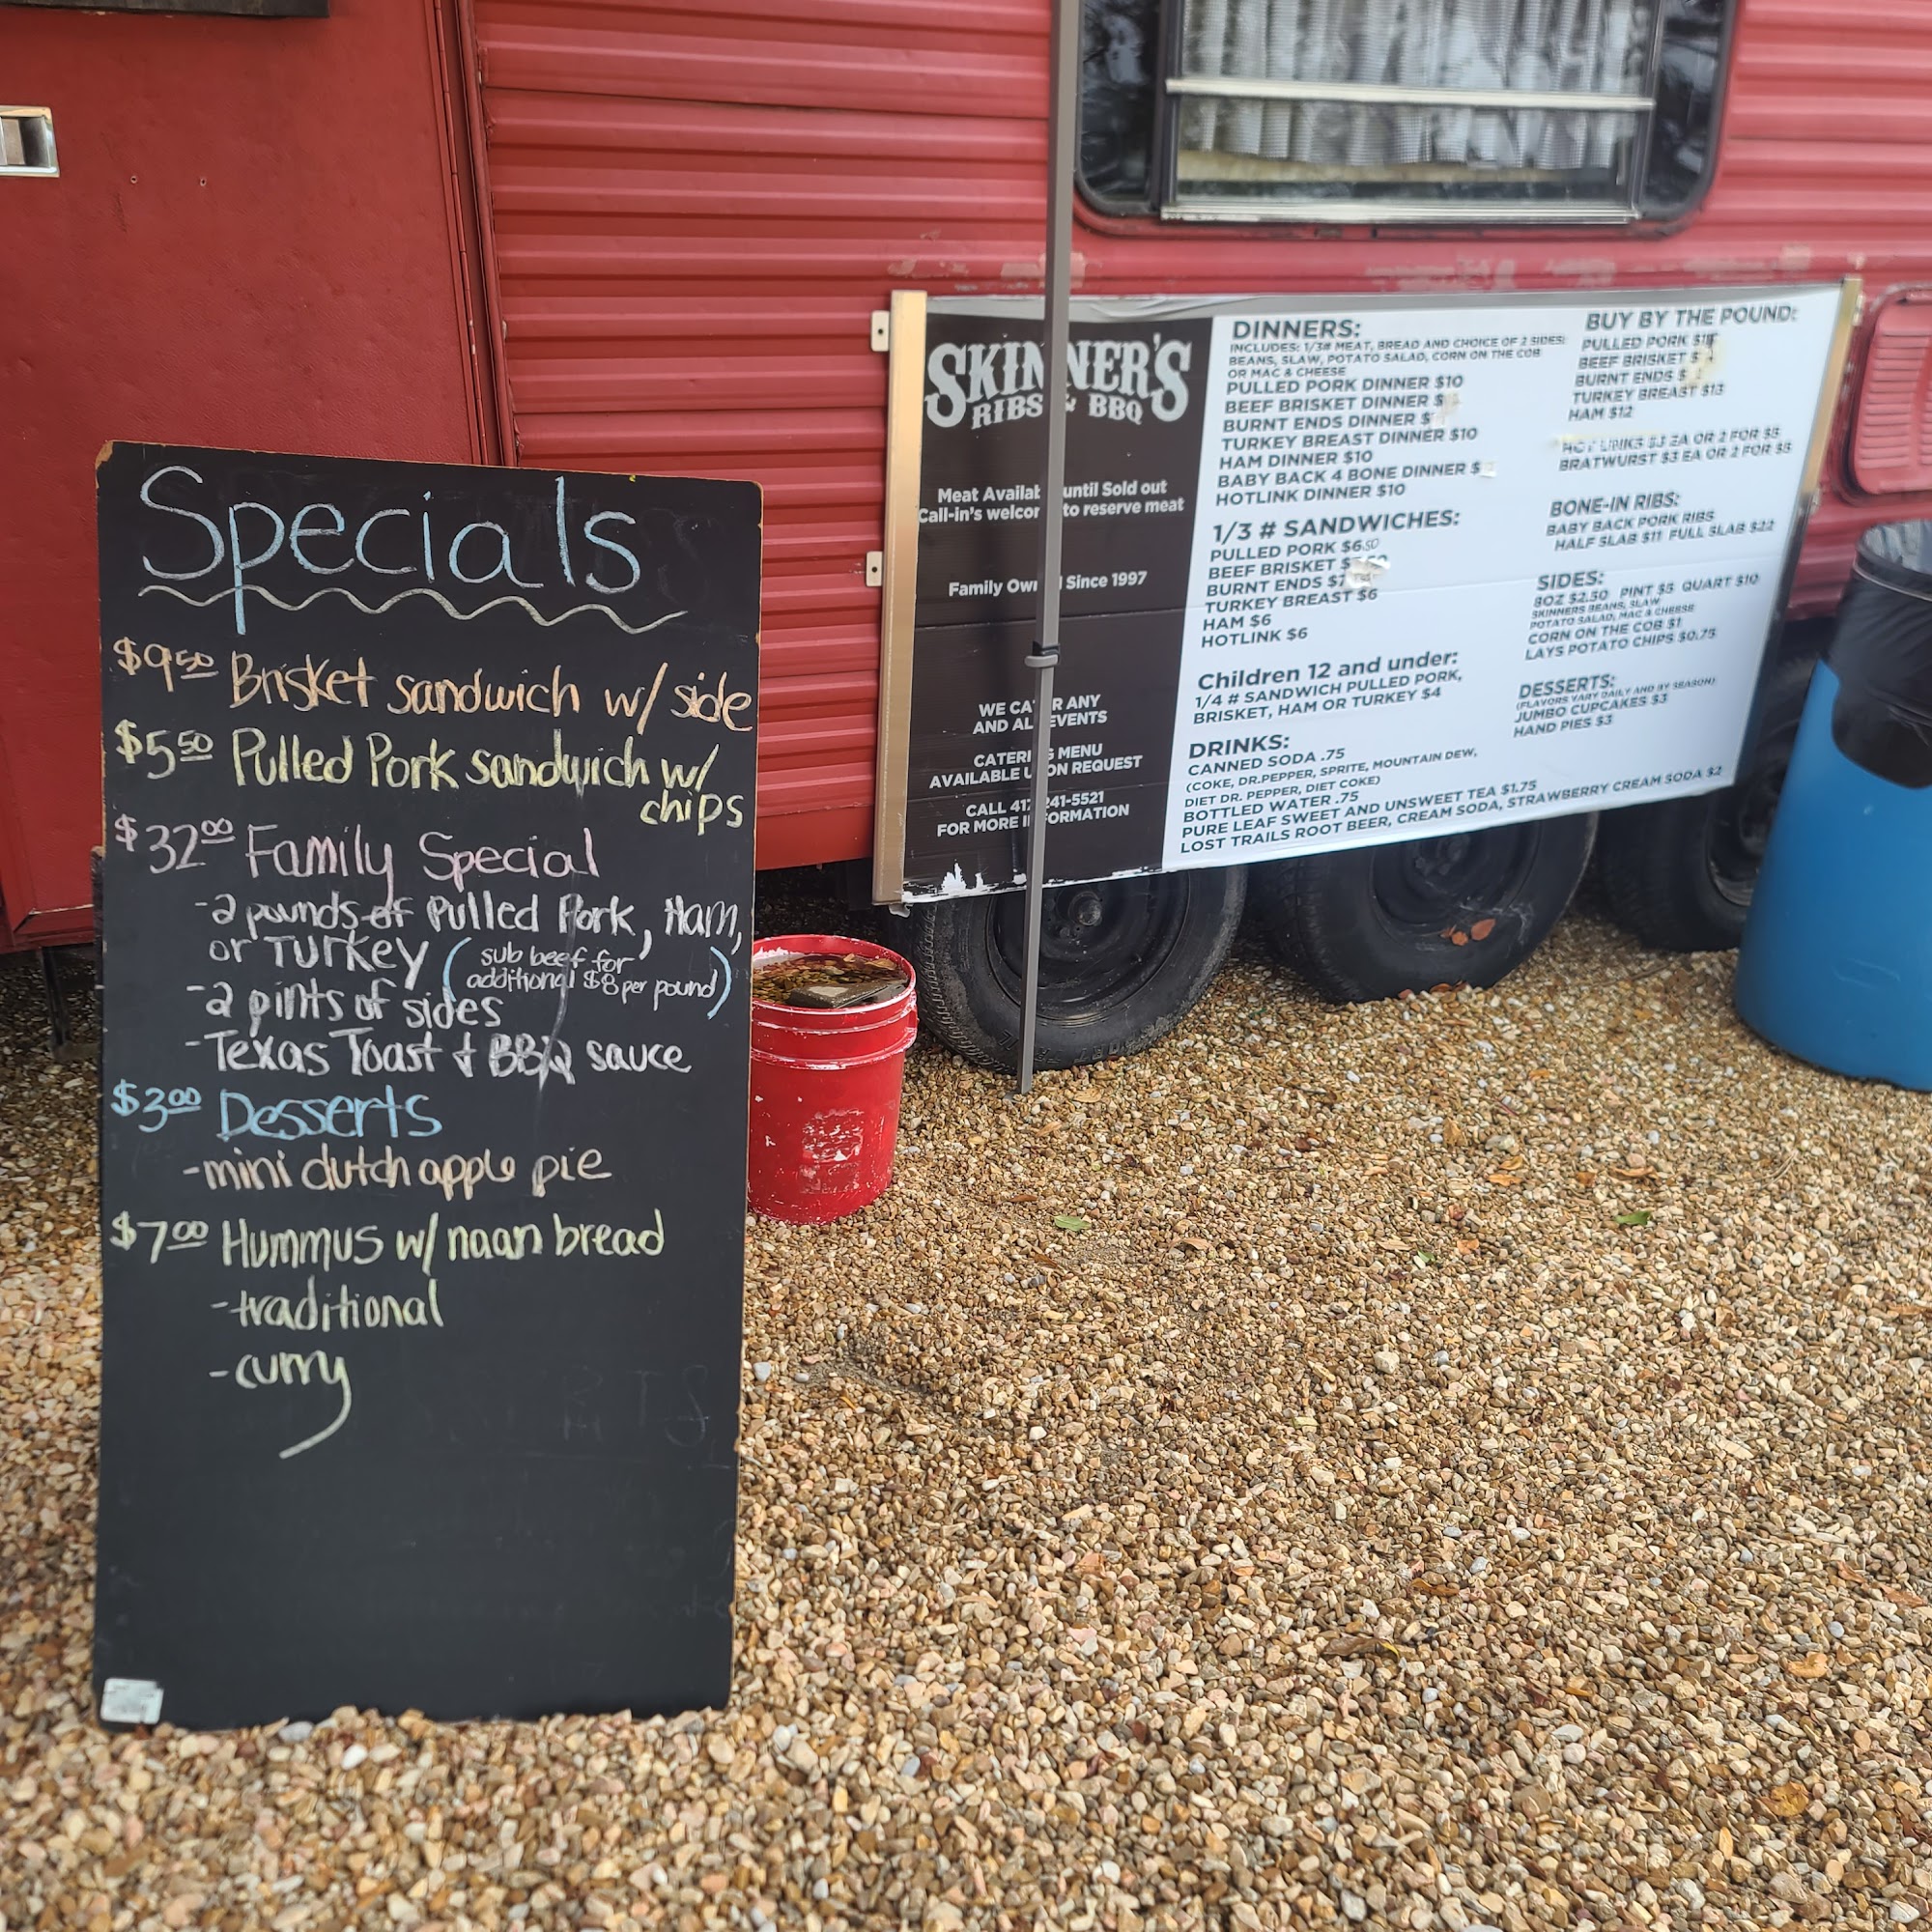 Specials
$9.50 Brisket sandwich w/ side
$5.50 Pulled Pork sandwich w/
chips
$32.00 Family Special
-2 pounds of Pulled Pork, Ham,
or Turkey (sub beef for
additional $8 per pound)
-2 pints of sides
-Texas Toast & BBQ sauce
$3.00 Desserts
-mini dutch apple pie
$7.00 Hummus w/ naan bread
-traditional
-curry
SKINNER'S
RIBS & BBQ
Meat Availab until Sold out
Call-in's welcom to reserve meat
Family Own Since 1997
WE CATER ANY
AND ALL EVENTS
CATERING MENU
AVAILABLE UPON REQUEST
CALL 417 241-5521
FOR MORE INFORMATION
DINNERS:
INCLUDES: 1/3# MEAT, BREAD AND CHOICE OF 2 SIDES:
BEANS, SLAW, POTATO SALAD, CORN ON THE COB
OR MAC & CHEESE
PULLED PORK DINNER $10
BEEF BRISKET DINNER
BURNT ENDS DINNER
TURKEY BREAST DINNER $10
HAM DINNER $10
BABY BACK 4 BONE DINNER $
HOTLINK DINNER $10
1/3 # SANDWICHES:
PULLED PORK $6.50
BEEF BRISKET
BURNT ENDS
TURKEY BREAST $6
HAM $6
HOTLINK $6
Children 12 and under:
1/4 # SANDWICH PULLED PORK,
BRISKET, HAM OR TURKEY $4
DRINKS:
CANNED SODA .75
(COKE, DR.PEPPER, SPRITE, MOUNTAIN DEW,
DIET DR. PEPPER, DIET COKE)
BOTTLED WATER .75
PURE LEAF SWEET AND UNSWEET TEA $1.75
LOST TRAILS ROOT BEER, CREAM SODA, STRAWBERRY CREAM SODA $2
BUY BY THE POUND:
PULLED PORK
BEEF BRISKET $
BURNT ENDS $
TURKEY BREAST $13
HAM $12
HOT LINKS $3 EA OR 2 FOR $5
BRATWURST $3 EA OR 2 FOR $5
BONE-IN RIBS:
BABY BACK PORK RIBS
HALF SLAB $11 FULL SLAB $22
SIDES:
8OZ $2.50 PINT $5 QUART $10
SKINNERS BEANS, SLAW
POTATO SALAD, MAC & CHEESE
CORN ON THE COB $1
LAYS POTATO CHIPS $0.75
DESSERTS:
(FLAVORS VARY DAILY AND BY SEASON)
JUMBO CUPCAKES $3
HAND PIES $3